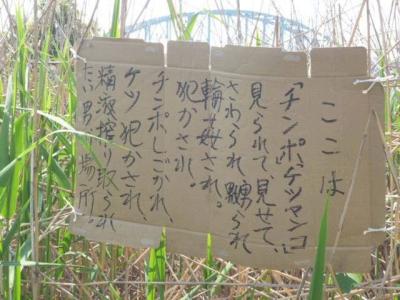 ここは
「チンポ、ケツマンコ」
見られて、見せて、
さわられ、嬲られ
輪姦され。
犯かされ。
チンポしごかれ、
ケツ犯かされ、
精液搾り取られ
たい男場所。